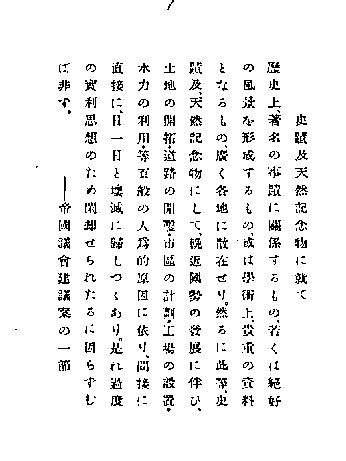 史蹟及天然記念物に就て
歷史上、著名の事蹟に關係するもの、若くは絕好
の風景を形成するもの、或は學術上、貴重の資料
となるもの、廣く各地に散在せり。然るに此等、史
蹟及、天然記念物にして、輓近國勢の發展に伴ひ、
土地の開拓・道路の開鑿・市區の計劃・工場の設置・
水力の利用・等百般の人爲的原因に依り、間接に
直接に、日一日と壞滅に歸しつゝあり。是れ過度
の實利思想のため閑却せられたるに因らずむ
ば非ず。
――帝國議會建議案の一節